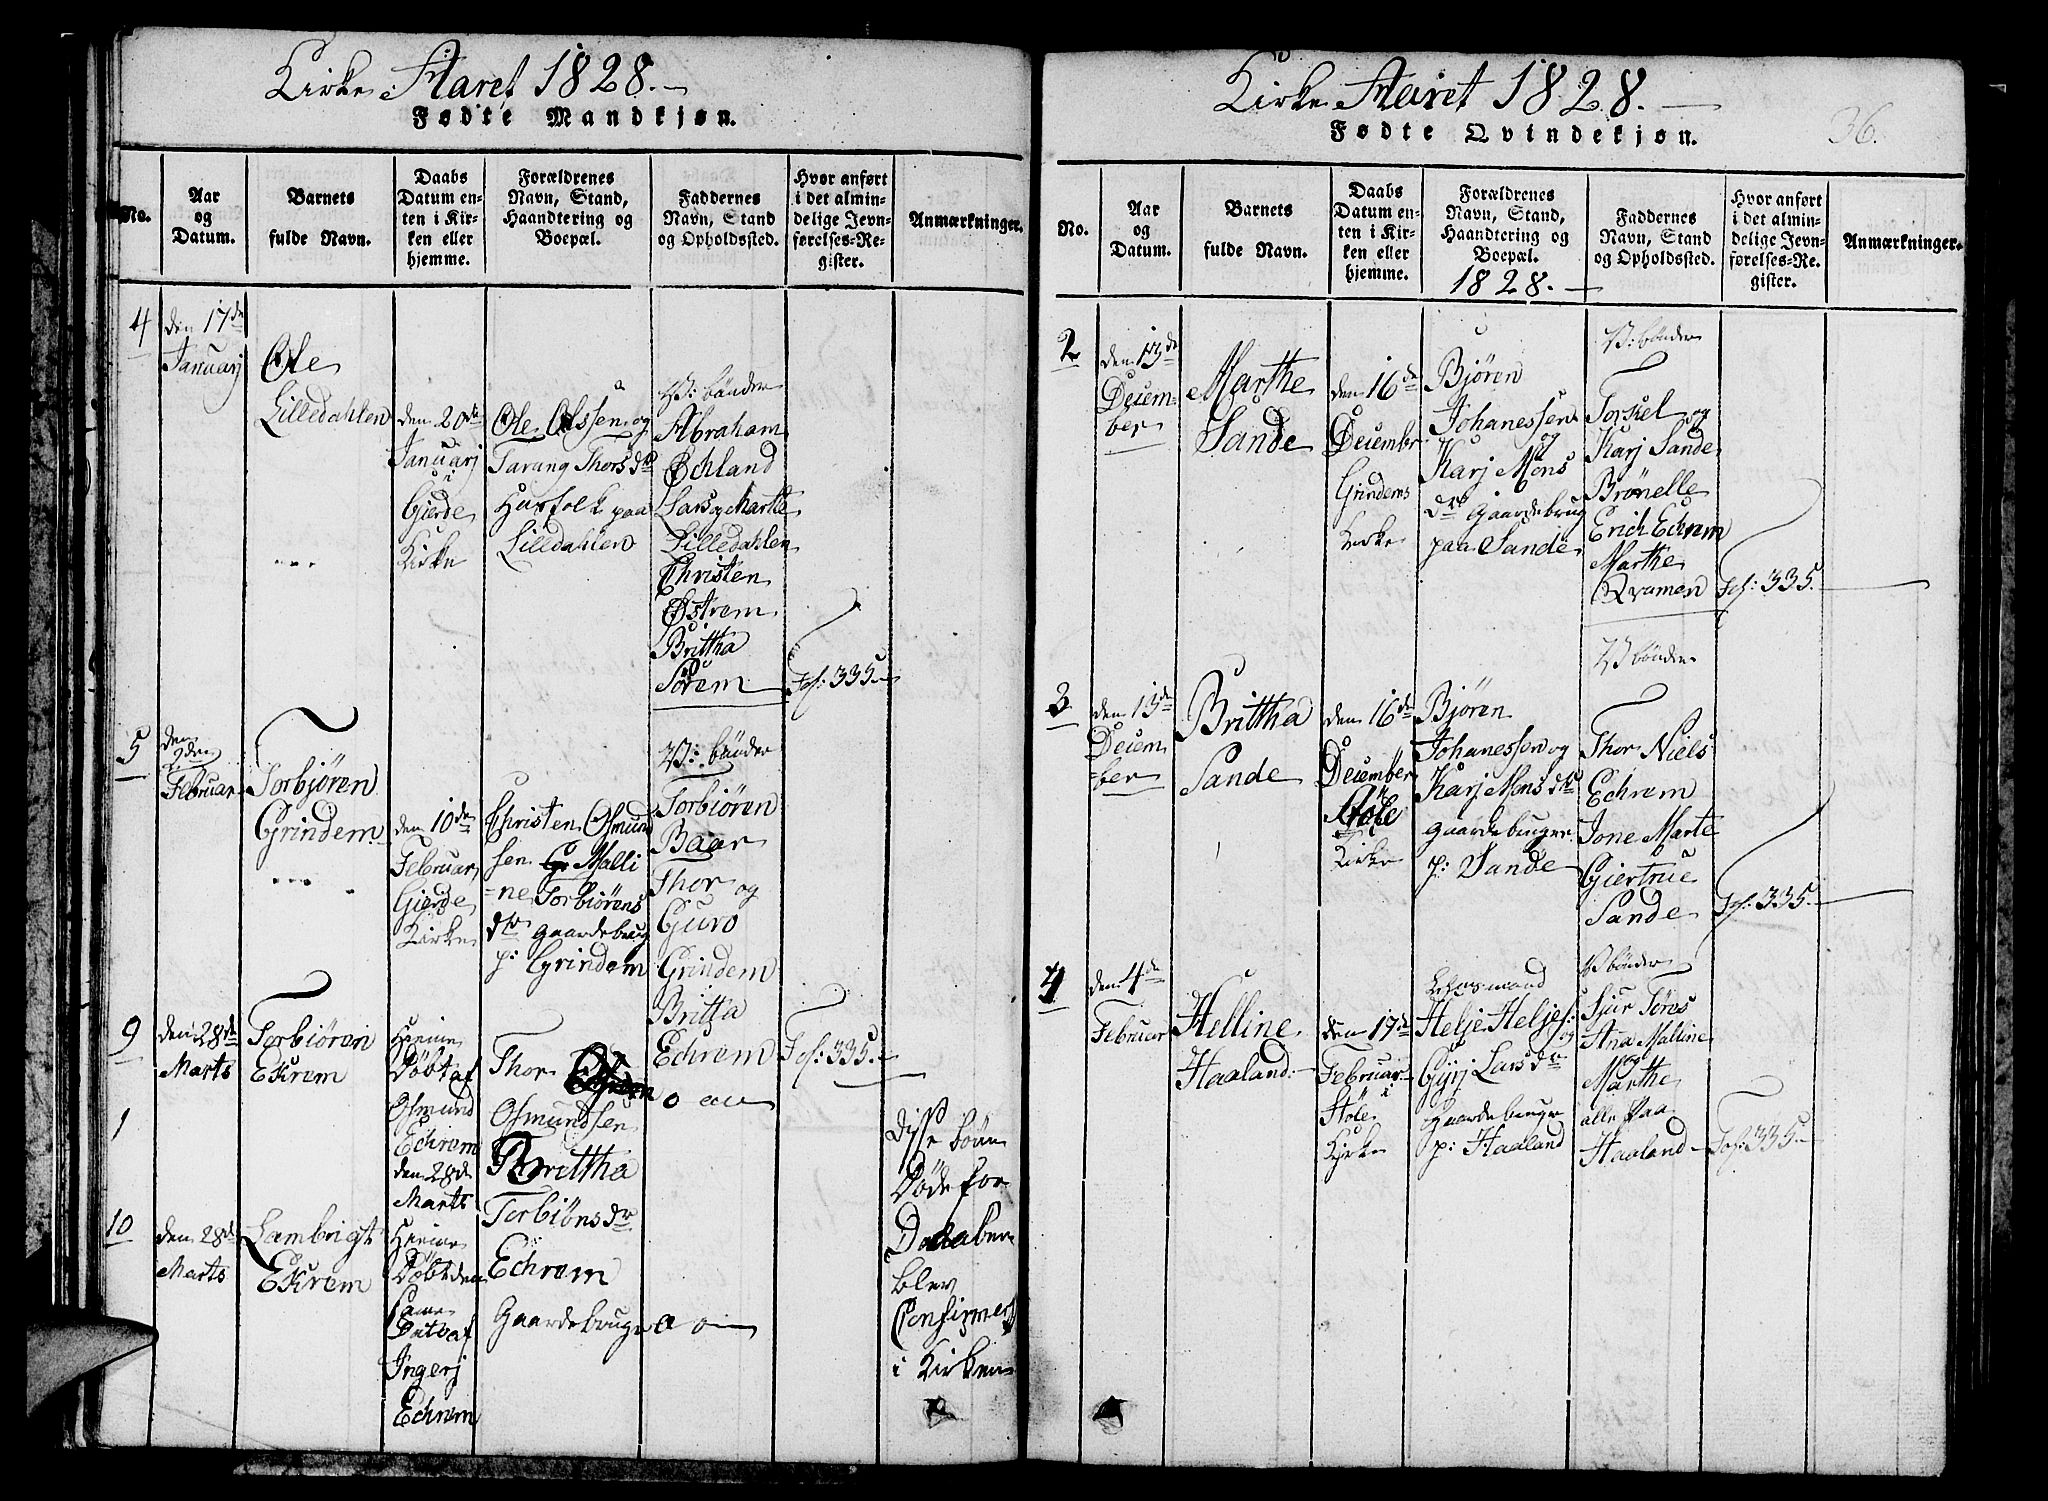 Kirke Aaret 1828.
Fødte Mandkjøn.
No.
Aar
og
Datum.
Barnets
fulde Navn.
Daabs
Datum en-
ten i Kir-
ken eller
hjemme.
Forældrenes
Navn, Stand,
Haandtering og
Boepæl.
Faddernes
Navn, Stand
og Opholdssted.
Hvor anført
i det almin-
delige Jevn-
førelses-Re-
gister.
Anmærkninger.
4
den 17de
Januarj
Ole
Lilledahlen
den 20de
Januarj
i
Gierde
Kirke
Ole Olssen og
Tarang Thorsdr
Husfolk paa
Lilledahlen
bönder
Abraham
Öchland
Lars og Marthe
Lilledahlen
Christen
Østrem
Brittha
Sörem
Fol: 335.
5
den
2den
Februar
Torbjören
Grindem
den 10de
Februar
Gierde
Kirke
Christen Osmund
sen Malli
=ne Torbiörens
dtr Gaardebrug
p: Grindem
bönder
Torbiören
Baar
Thor og
Guro
Grindem
Britta
Echrem
Fol: 335.
9
den 28de
Marts
Torbiören
Ekrem
Hieme
Döbt af
Osmund
Echrem
den 28de
Marts
Thor
Osmundsen
Brittha
Torbiönsdr
Echrem
Gaardebruger
1
10
den 28de
Marts
Lambrigt
Ekrem
Hieme
Döbt den
Same
Dato af
Ingerj
Echrem
Disse börn
Döde for
Daaben
blev
Confirmert
i Kirken
Kirke Aaret 1828.
Fødte Qvindekjøn.
36.
No.
Aar
og
Datum.
Barnets
fulde Navn.
Daabs
Datum en-
ten i Kir-
ken eller
hjemme.
Forældrenes
Navn, Stand,
Haandtering og
Boepæl.
1828.
Faddernes
Navn, Stand
og Opholdssted.
Hvor anført
i det almin-
delige Jevn-
førelses-Re-
gister.
Anmærkninger.
2
den 13de
Decem-
ber
Marthe
Sande
den 16de
Decembr
Grindems
Kirke
Björen
Johanessen
og
Karj Mons
dtr Gaardebrug
paa Sande
bönder
Torkel og
Karj Sande
Brönelle
Erich Echrem
Marthe
Qvamen
Fol: 335.
3
den 13de
Decem
=ber
Brittha
Sande
den 16de
December
i
Stöle
Kirke
Björen
Johanessen og
Karj Mons dtr
Gaardebruger
p: Sande
bönder
Thor Niels
Echrem
Jone Marte
Giertrue
Sande
Fol: 335.
4
den 4de
Februar
Helline
Haaland
den 17de
Februar
i
Stöle
Kirke
Helje Heljes:
og
Gyrj Lars dtr
Gaardebruger
p: Haaland
bönder
Sjur Töres
Ana Malline
og
Marthe
alle paa
Haaland
Fol: 335.